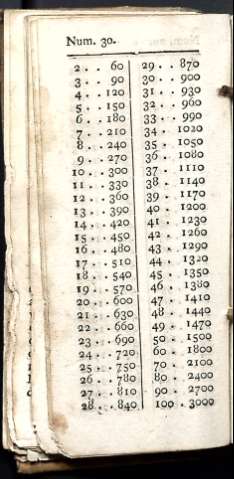 Num. 30.
2 . . 60
3 . . 90
4 . . 120
5 . . 150
6 . . 180
7 . . 210
8 . . 240
9 . . 270
10 . . 300
11 . . 330
12 . . 360
13 . . 390
14 . . 420
15 . . 450
16 . . 480
17 . . 510
18 . . 540
19 . . 570
20 . . 600
21 . . 630
22 . . 660
23 . . 690
24 . . 720
25 . . 750
26 . . 780
27 . . 810
28 . . 840
29 . . 870
30 . . 900
31 . . 930
32 . . 960
33 . . 990
34 . . 1020
35 . . 1050
36 . . 1080
37 . . 1110
38 . . 1140
39 . . 1170
40 . . 1200
41 . . 1230
42 . . 1260
43 . . 1290
44 . . 1320
45 . . 1350
46 . . 1380
47 . . 1410
48 . . 1440
49 . . 1470
50 . . 1500
60 . . 1800
70 . . 2100
80 . . 2400
90 . . 2700
100 . . 3000